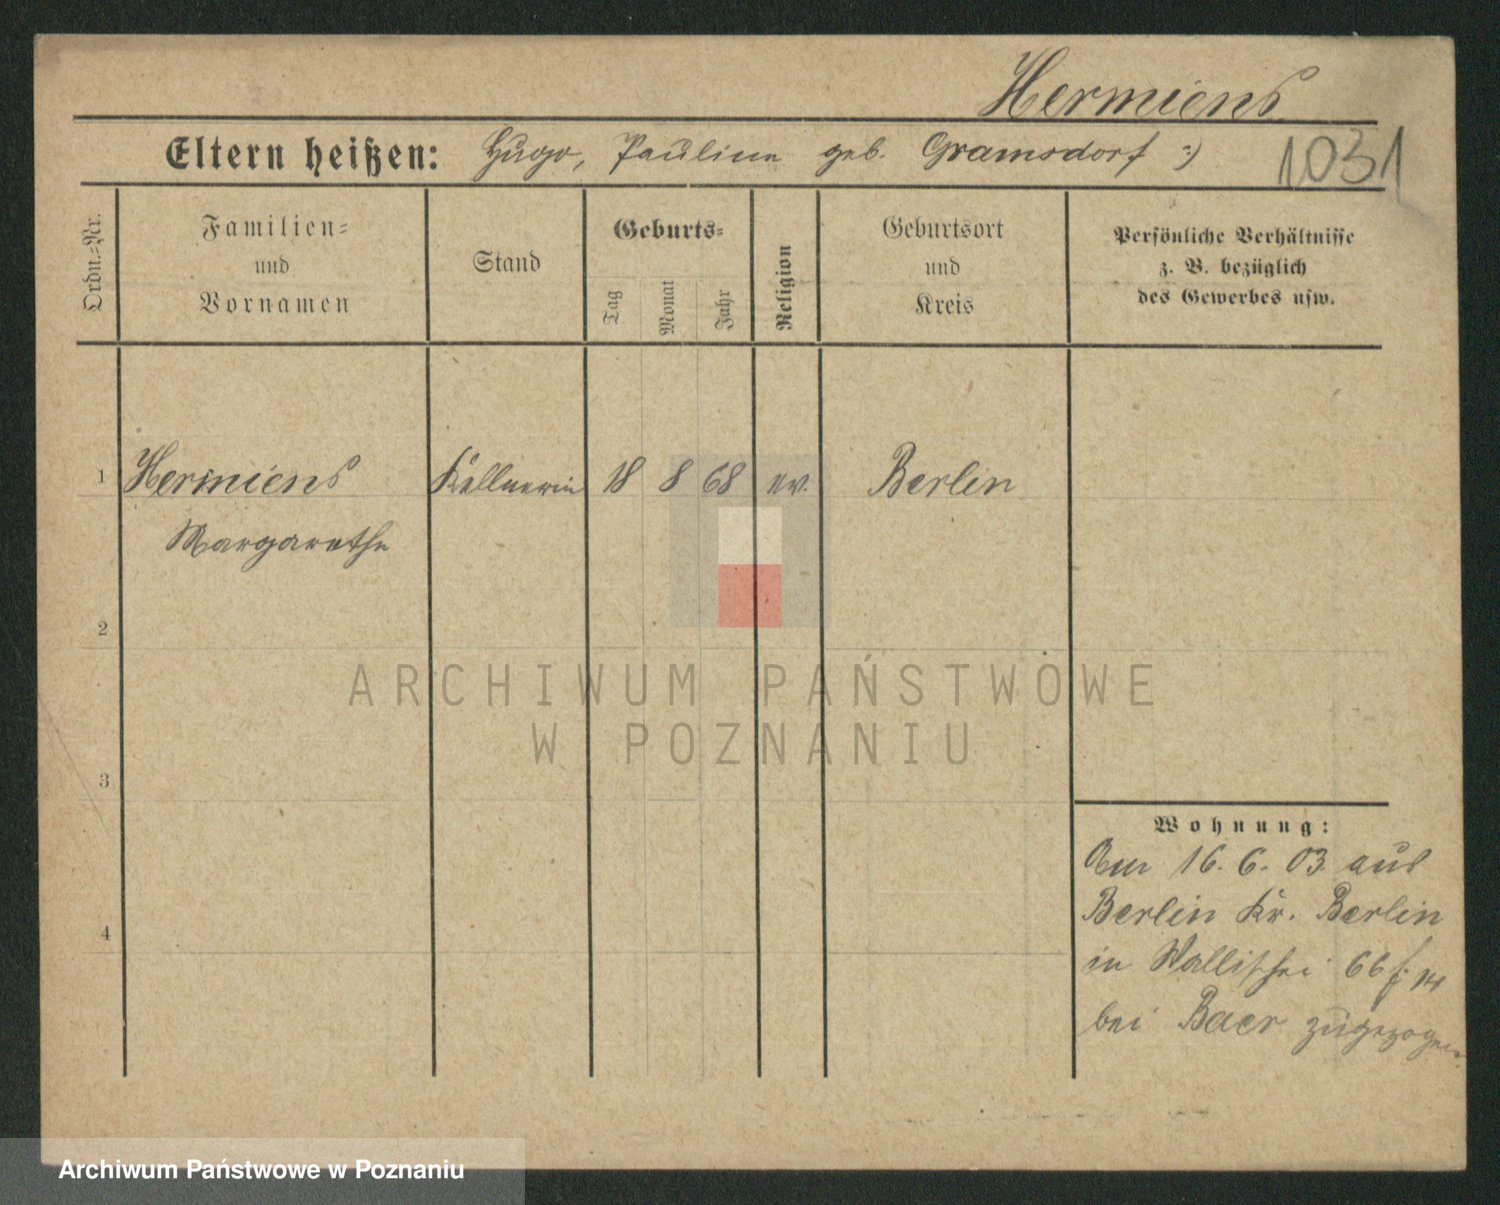 Hermiens
Eltern heißen: Hugo, Pauline geb. Gramsdorf :)
1031
Ordn.-Nr.
Familien- und Vornamen
Stand
Geburts-
Tag
Monat
Jahr
Religion
Geburtsort und Kreis
Persönliche Verhältnisse
z. B. bezüglich
des Gewerbes usw.
1 Hermiens Kellnerin 18 8 68 ev. Berlin
Margarethe
2
ARCHIWUM PAŃSTWOWE
W POZNANIU
3
4
Wohnung:
Am 16. 6. 03 aus
Berlin Kr. Berlin
in Wallischei 66
bei Baer zugezogen
Archiwum Państwowe w Poznaniu